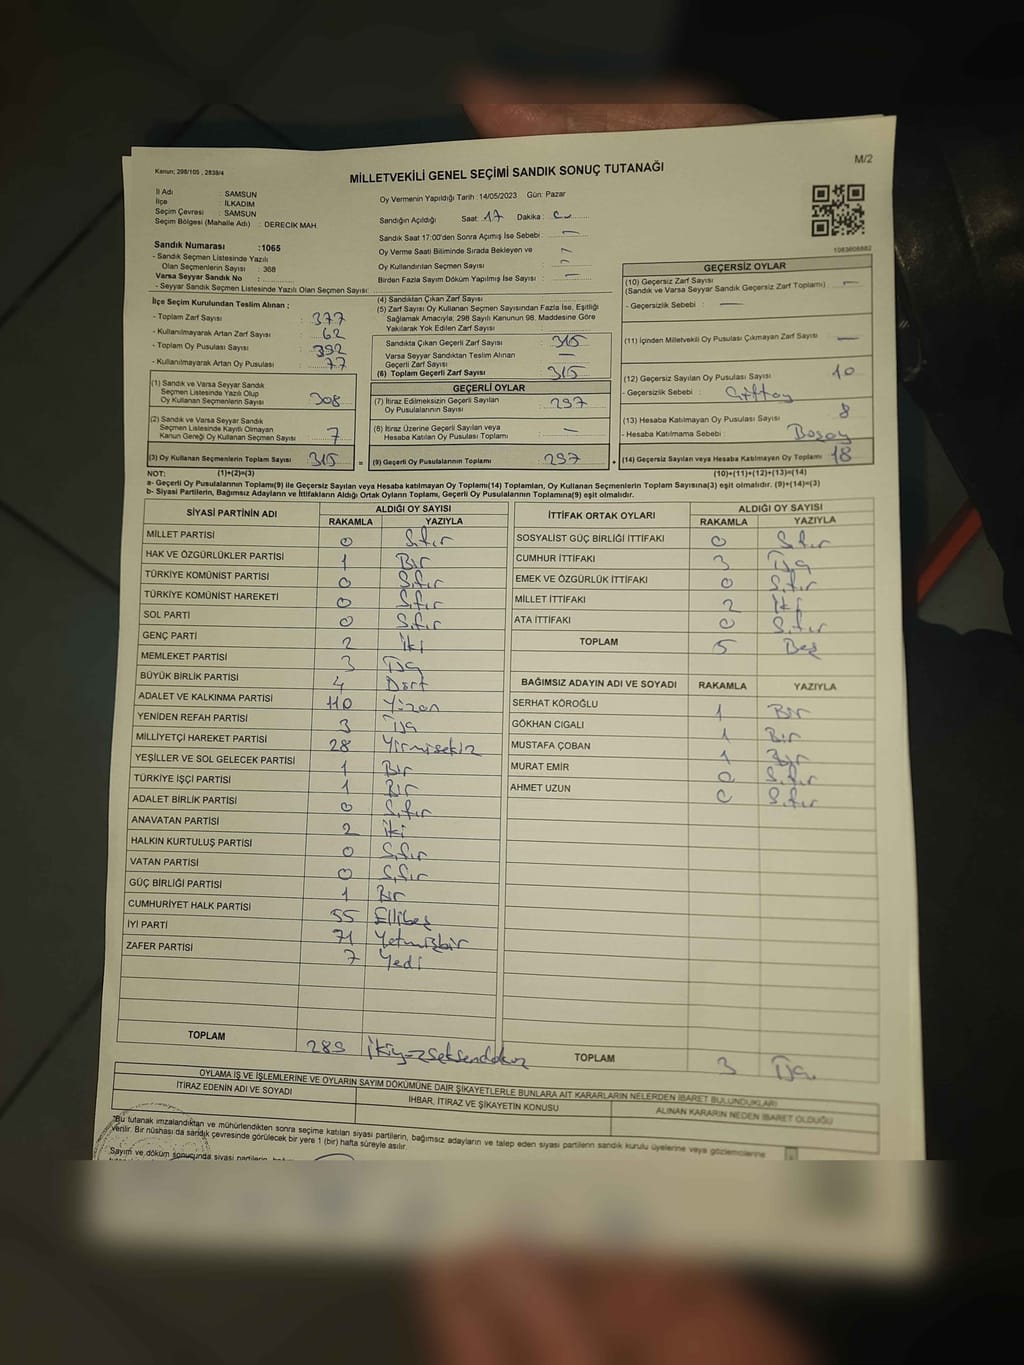 Kanun; 298/105 , 2839/4
M/2
MİLLETVEKİLİ GENEL SEÇİMİ SANDIK SONUÇ TUTANAĞI
İl Adı : SAMSUN
İlçe : İLKADIM
Seçim Çevresi : SAMSUN
Seçim Bölgesi (Mahalle Adı) : DERECİK MAH.
Sandık Numarası :1065
- Sandık Seçmen Listesinde Yazılı
Olan Seçmenlerin Sayısı : 368
Varsa Seyyar Sandık No :
- Seyyar Sandık Seçmen Listesinde Yazılı Olan Seçmen Sayısı:
Oy Vermenin Yapıldığı Tarih : 14/05/2023 Gün: Pazar
Sandığın Açıldığı Saat: 17 Dakika:
Sandık Saat 17:00'den Sonra Açımış İse Sebebi : —
Oy Verme Saati Bitiminde Sırada Bekleyen ve
Oy Kullandırılan Seçmen Sayısı : —
Birden Fazla Sayım Döküm Yapılmış İse Sayısı : —
1083608882
İlçe Seçim Kurulundan Teslim Alınan ;
- Toplam Zarf Sayısı : 377
- Kullanılmayarak Artan Zarf Sayısı : 62
- Toplam Oy Pusulası Sayısı : 392
- Kullanılmayarak Artan Oy Pusulası : 77
(1) Sandık ve Varsa Seyyar Sandık
Seçmen Listesinde Yazılı Olup
Oy Kullanan Seçmenlerin Sayısı : 308
(2) Sandık ve Varsa Seyyar Sandık
Seçmen Listesinde Kayıtlı Olmayan
Kanun Gereği Oy Kullanan Seçmen Sayısı : 7
(3) Oy Kullanan Seçmenlerin Toplam Sayısı : 315
(4) Sandıktan Çıkan Zarf Sayısı :
(5) Zarf Sayısı Oy Kullanan Seçmen Sayısından Fazla İse, Eşitliği
Sağlamak Amacıyla; 298 Sayılı Kanunun 98. Maddesine Göre
Yakılarak Yok Edilen Zarf Sayısı :
Sandıkta Çıkan Geçerli Zarf Sayısı : 315
Varsa Seyyar Sandıktan Teslim Alınan
Geçerli Zarf Sayısı : —
(6) Toplam Geçerli Zarf Sayısı : 315
GEÇERLİ OYLAR
(7) İtiraz Edilmeksizin Geçerli Sayılan
Oy Pusulalarının Sayısı : 297
(8) İtiraz Üzerine Geçerli Sayılan veya
Hesaba Katılan Oy Pusulası Toplamı : —
= (9) Geçerli Oy Pusulalarının Toplamı : 297 +
GEÇERSİZ OYLAR
(10) Geçersiz Zarf Sayısı
(Sandık ve Varsa Seyyar Sandık Geçersiz Zarf Toplamı) : —
- Geçersizlik Sebebi : —
(11) İçinden Milletvekili Oy Pusulası Çıkmayan Zarf Sayısı : —
(12) Geçersiz Sayılan Oy Pusulası Sayısı : 10
- Geçersizlik Sebebi :
(13) Hesaba Katılmayan Oy Pusulası Sayısı : 8
- Hesaba Katılmama Sebebi :
(14) Geçersiz Sayılan veya Hesaba Katılmayan Oy Toplamı : 18
NOT: (1)+(2)=(3) (10)+(11)+(12)+(13)=(14)
a- Geçerli Oy Pusulalarının Toplamı(9) ile Geçersiz Sayılan veya Hesaba katılmayan Oy Toplamı(14) Toplamları, Oy Kullanan Seçmenlerin Toplam Sayısına(3) eşit olmalıdır. (9)+(14)=(3)
b- Siyasi Partilerin, Bağımsız Adayların ve İttifakların Aldığı Ortak Oyların Toplamı, Geçerli Oy Pusulalarının Toplamına(9) eşit olmalıdır.
SİYASİ PARTİNİN ADI ALDIĞI OY SAYISI
RAKAMLA YAZIYLA
MİLLET PARTİSİ 0 Sıfır
HAK VE ÖZGÜRLÜKLER PARTİSİ 1 Bir
TÜRKİYE KOMÜNİST PARTİSİ 0 Sıfır
TÜRKİYE KOMÜNİST HAREKETİ 0 Sıfır
SOL PARTİ 0 Sıfır
GENÇ PARTİ 2 İki
MEMLEKET PARTİSİ 3 Üç
BÜYÜK BİRLİK PARTİSİ 4 Dört
ADALET VE KALKINMA PARTİSİ 110 Yüzon
YENİDEN REFAH PARTİSİ 3 Üç
MİLLİYETÇİ HAREKET PARTİSİ 28 Yirmisekiz
YEŞİLLER VE SOL GELECEK PARTİSİ 1 Bir
TÜRKİYE İŞÇİ PARTİSİ 1 Bir
ADALET BİRLİK PARTİSİ 0 Sıfır
ANAVATAN PARTİSİ 2 İki
HALKIN KURTULUŞ PARTİSİ 0 Sıfır
VATAN PARTİSİ 0 Sıfır
GÜÇ BİRLİĞİ PARTİSİ 1 Bir
CUMHURİYET HALK PARTİSİ 55 Ellibeş
İYİ PARTİ 71 Yetmişbir
ZAFER PARTİSİ 7 Yedi
TOPLAM 289 İkiyüzseksendokuz
İTTİFAK ORTAK OYLARI ALDIĞI OY SAYISI
RAKAMLA YAZIYLA
SOSYALİST GÜÇ BİRLİĞİ İTTİFAKI 0 Sıfır
CUMHUR İTTİFAKI 3 Üç
EMEK VE ÖZGÜRLÜK İTTİFAKI 0 Sıfır
MİLLET İTTİFAKI 2 İki
ATA İTTİFAKI 0 Sıfır
TOPLAM 5 Beş
BAĞIMSIZ ADAYIN ADI VE SOYADI RAKAMLA YAZIYLA
SERHAT KÖROĞLU 1 Bir
GÖKHAN CIGALI 1 Bir
MUSTAFA ÇOBAN 1 Bir
MURAT EMİR 0 Sıfır
AHMET UZUN 0 Sıfır
TOPLAM 3 Üç
OYLAMA İŞ VE İŞLEMLERİNE VE OYLARIN SAYIM DÖKÜMÜNE DAİR ŞİKAYETLERLE BUNLARA AİT KARARLARIN NELERDEN İBARET BULUNDUKLARI
İTİRAZ EDENİN ADI VE SOYADI İHBAR, İTİRAZ VE ŞİKAYETİN KONUSU ALINAN KARARIN NEDEN İBARET OLDUĞU
"Bu tutanak imzalandıktan ve mühürlendikten sonra seçime katılan siyasi partilerin, bağımsız adayların ve talep eden siyasi partilerin sandık kurulu üyelerine veya gözlemcilerine
verilir. Bir nüshası da sandık çevresinde görülecek bir yere 1 (bir) hafta süreyle asılır.
Sayım ve döküm sonucunda siyasi partilerin,